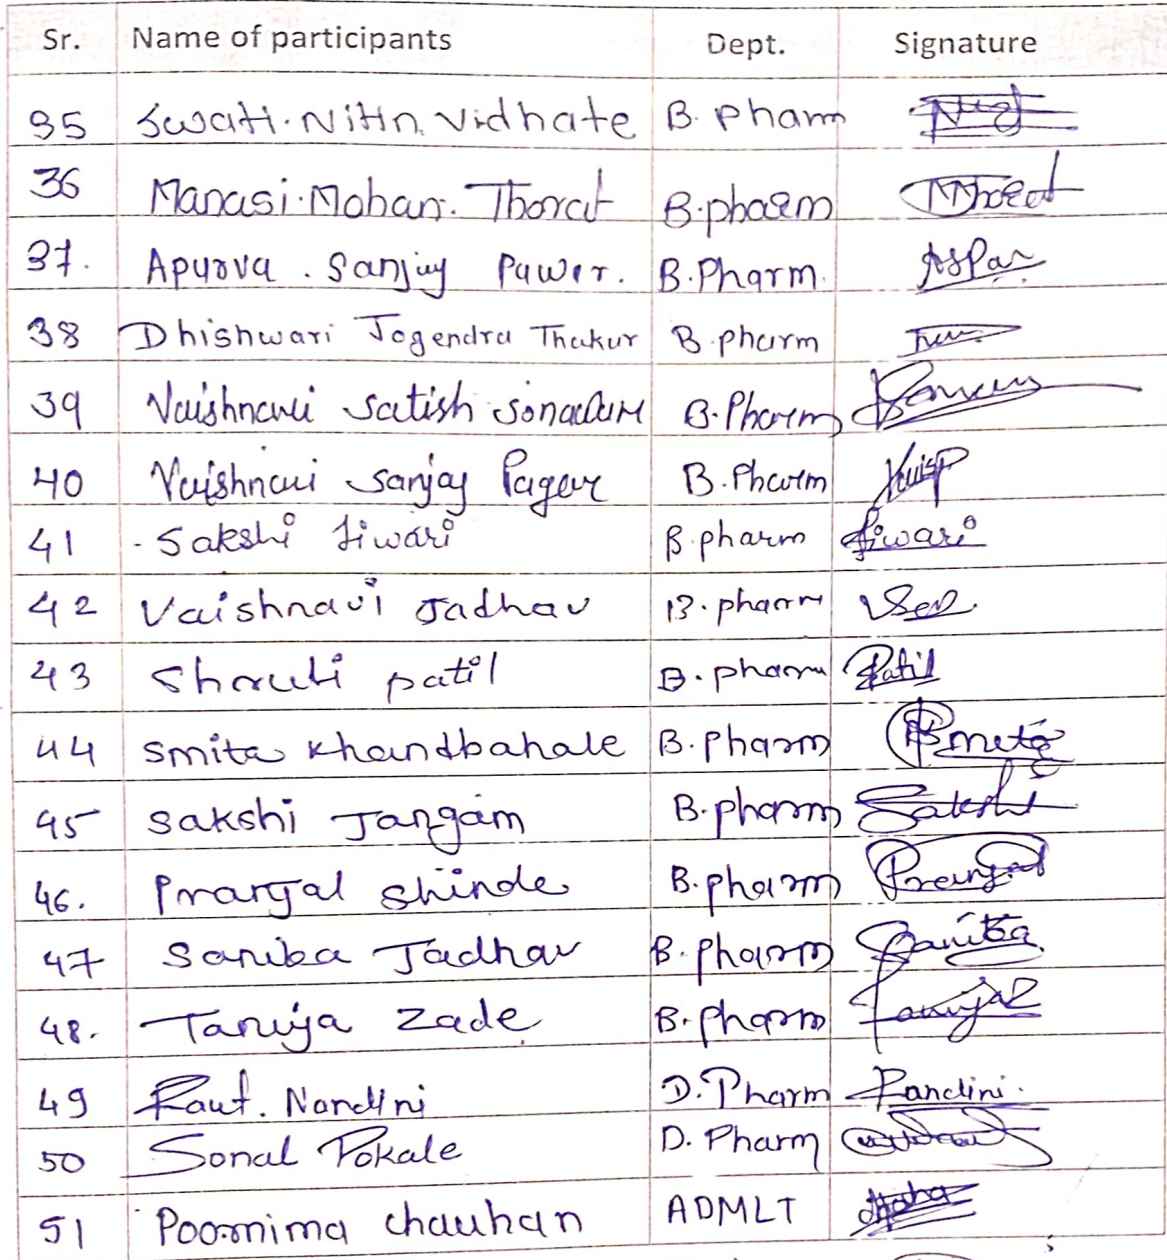 Sr. Name of participants Dept. Signature
35 Swati Nitin Vidhate B. Pharm
36 Manasi Mohan. Thorat B.pharm MThorat
37. Apurva . Sanjay Pawar. B.Pharm.
38 Dhishwari Jogendra Thakur B.pharm
39 Vaishnavi Satish B.Pharm
40 Vaishnavi Sanjay Pagar B.Pharm
41 Sakshi Tiwari B.pharm Tiwari
42 Vaishnavi Jadhav B.pharm
43 Shruti patil B.pharm Patil
44 Smita Khandbahale B.pharm
45 Sakshi Jangam B.pharm Sakshi
46. Pranjal Shinde B.pharm Pranjal
47 Sanika Jadhav B.pharm Sanika
48. Tanuja Zade B.pharm Tanuja
49 Raut. Nandini D.Pharm
50 Sonal Pokale D. Pharm
51 Poornima chauhan ADMLT